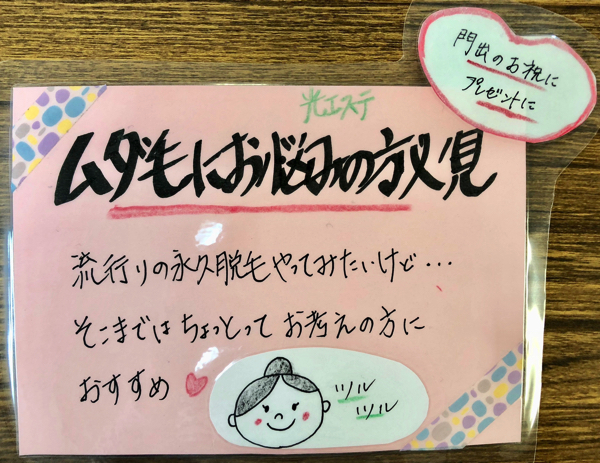 門出のお祝に
プレゼントに
光エステ
ムダ毛にお悩みの方必見
流行りの永久脱毛やってみたいけど・・・
そこまではちょっとってお考えの方に
おすすめ
ツル
ツル